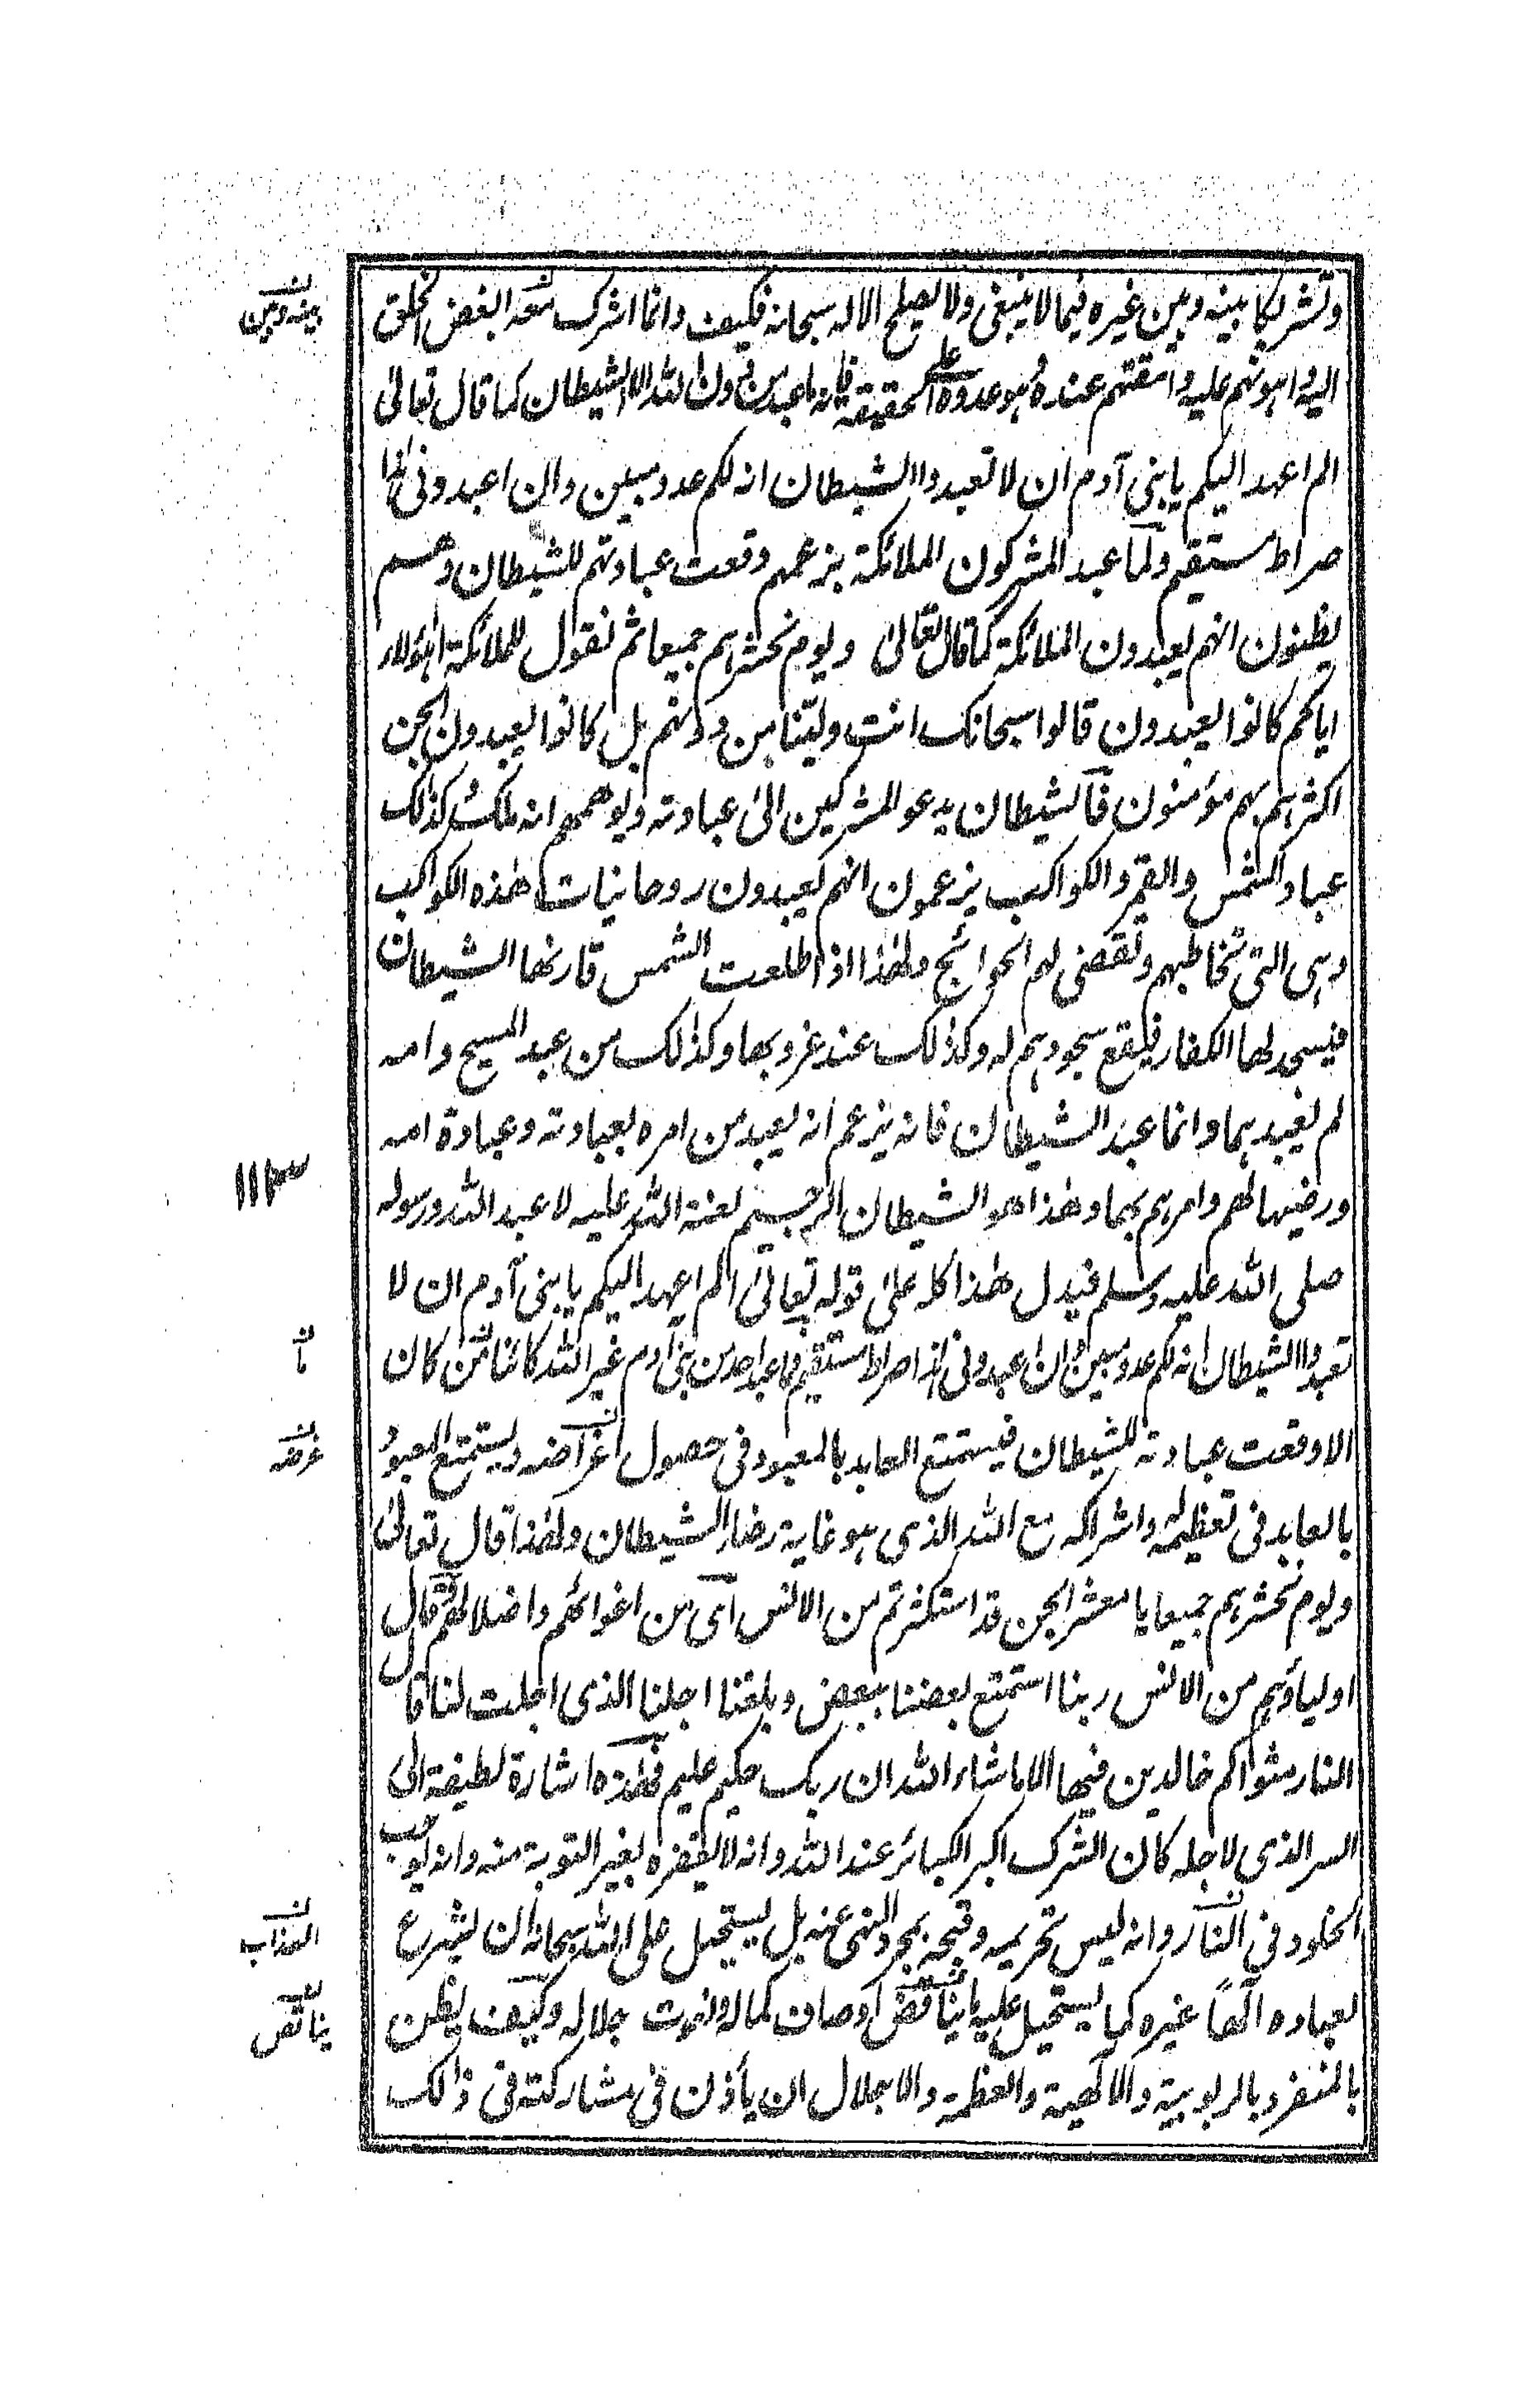 وتشريكا بينه وبين غيره فيما لا ينبغى ولا يصلح الا له سبحانه فكيف وانما اشرك معه ابغض الخلق
اليه واهونهم عليه وامقتهم عنده وهو عدوه على الحقيقة فانه ما عبد من دون الله الا الشيطان كما قال تعالى
الم اعهد اليكم يا بنى آدم ان لا تعبدوا الشيطان انه لكم عدو مبين وان اعبدونى هذا
صراط مستقيم ولما عبد المشركون الملائكة بزعمهم وقعت عبادتهم للشيطان وهم
يظنون انهم يعبدون الملائكة كما قال تعالى ويوم نحشرهم جميعا ثم نقول للملائكة اهؤلاء
اياكم كانوا يعبدون قالوا سبحانك انت ولينا من دونهم بل كانوا يعبدون الجن
اكثرهم بهم مؤمنون فالشيطان يدعو المشركين الى عبادته ويوهمهم انه ملك كذلك
عباد الشمس والقمر والكواكب يزعمون انهم يعبدون روحانيات هذه الكواكب
وهى التى تخاطبهم وتقضى لهم الحوائج ولهذا اذا طلعت الشمس قارنها الشيطان
فيسجد لها الكفار فيقع سجودهم له وكذلك عند غروبها وكذلك من عبد المسيح وامه
لم يعبدهما وانما عبد الشيطان فانه يزعم انه يعبد من امره بعبادته وعبادة امه
ورضيها لهم وامرهم بها وهذا هو الشيطان الرجيم لعنة الله عليه لا عبد الله ورسوله
صلى الله عليه وسلم فيدل هذا كله على قوله تعالى الم اعهد اليكم يا بنى آدم ان لا
تعبدوا الشيطان انه لكم عدو مبين وان اعبدونى هذا صراط مستقيم فما عبد احد من بنى ادم غير الله كائنا من كان
الا وقعت عبادته للشيطان فيستمتع العابد بالمعبود فى حصول اغراضه ويستمتع المعبود
بالعابد فى تعظيمه له واشراكه مع الله الذى هو غاية رضاء الشيطان ولهذا قال تعالى
ويوم نحشرهم جميعا يا معشر الجن قد استكثرتم من الانس اى من اغوائهم واضلالهم وقال
اولياؤهم من الانس ربنا استمتع بعضنا ببعض وبلغنا اجلنا الذى اجلت لنا قال
النار مثواكم خالدين فيها الا ما شاء الله ان ربك حكيم عليم فهذه اشارة لطيفة الى
السر الذى لاجله كان الشرك اكبر الكبائر عند الله وانه لا يغفره بغير التوبة منه وانه يوجب
الخلود فى النار وانه ليس تحريمه وقبحه بمجرد النهى عنه بل يستحيل على الله سبحانه ان يشرع
لعباده الها غيره كما يستحيل عليه ما يناقض اوصاف كماله ونعوت جلاله وكيف يظن
بالمنفرد بالربوبية والالهية والعظمة والاجلال ان يأذن فى مشاركته فى ذلك
بينه وبين
١١٣
ما
غرضه
العذاب
يناقض